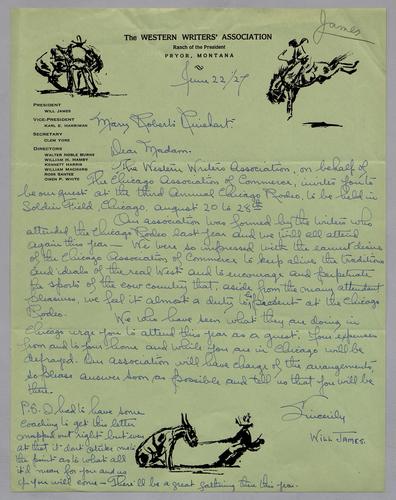 James
The WESTERN WRITERS' ASSOCIATION
Ranch of the President
PRYOR, MONTANA
June 22/27
PRESIDENT
WILL JAMES
VICE-PRESIDENT
KARL E. HARRIMAN
SECRETARY
CLEM YORE
DIRECTORS
WALTER NOBLE BURNS
WILLIAM H. HAMBY
KENNETT HARRIS
WILLIAM MACHARG
ROSS SANTEE
OWEN P. WHITE
Mary Roberts Rinehart.
Dear Madam.
The Western Writers Association, on behalf of
The Chicago Association of Commerce, invites you to
be our guest at the third annual Chicago Rodeo, to be held in
Soldier Field, Chicago, august 20 to 28th
Our association was formed by the writers who
attended the Chicago Rodeo last year and we will all attend
again this year — We were so impressed with the earnest desire
of the Chicago Association of Commerce to keep alive the traditions
and ideals of the real West and to encourage and perpetuate
the sports of the cow country that, aside from the many attendant
pleasures, we feel it almost a duty to be present at the Chicago
Rodeo.
We who have seen what they are doing in
Chicago urge you to attend this year as a guest. Your expenses
from and to your home and while you are in Chicago will be
defrayed. Our association will have charge of the arrangements,
so please answer soon as possible and tell us that you will be
there.
Sincerely
WILL JAMES.
P.S. I had to have some
coaching to get this letter
mapped out right but even
at that it dont strike me
the point as to what all
it'd mean for you and us
if you will come — There'll be a great gathering there this year.